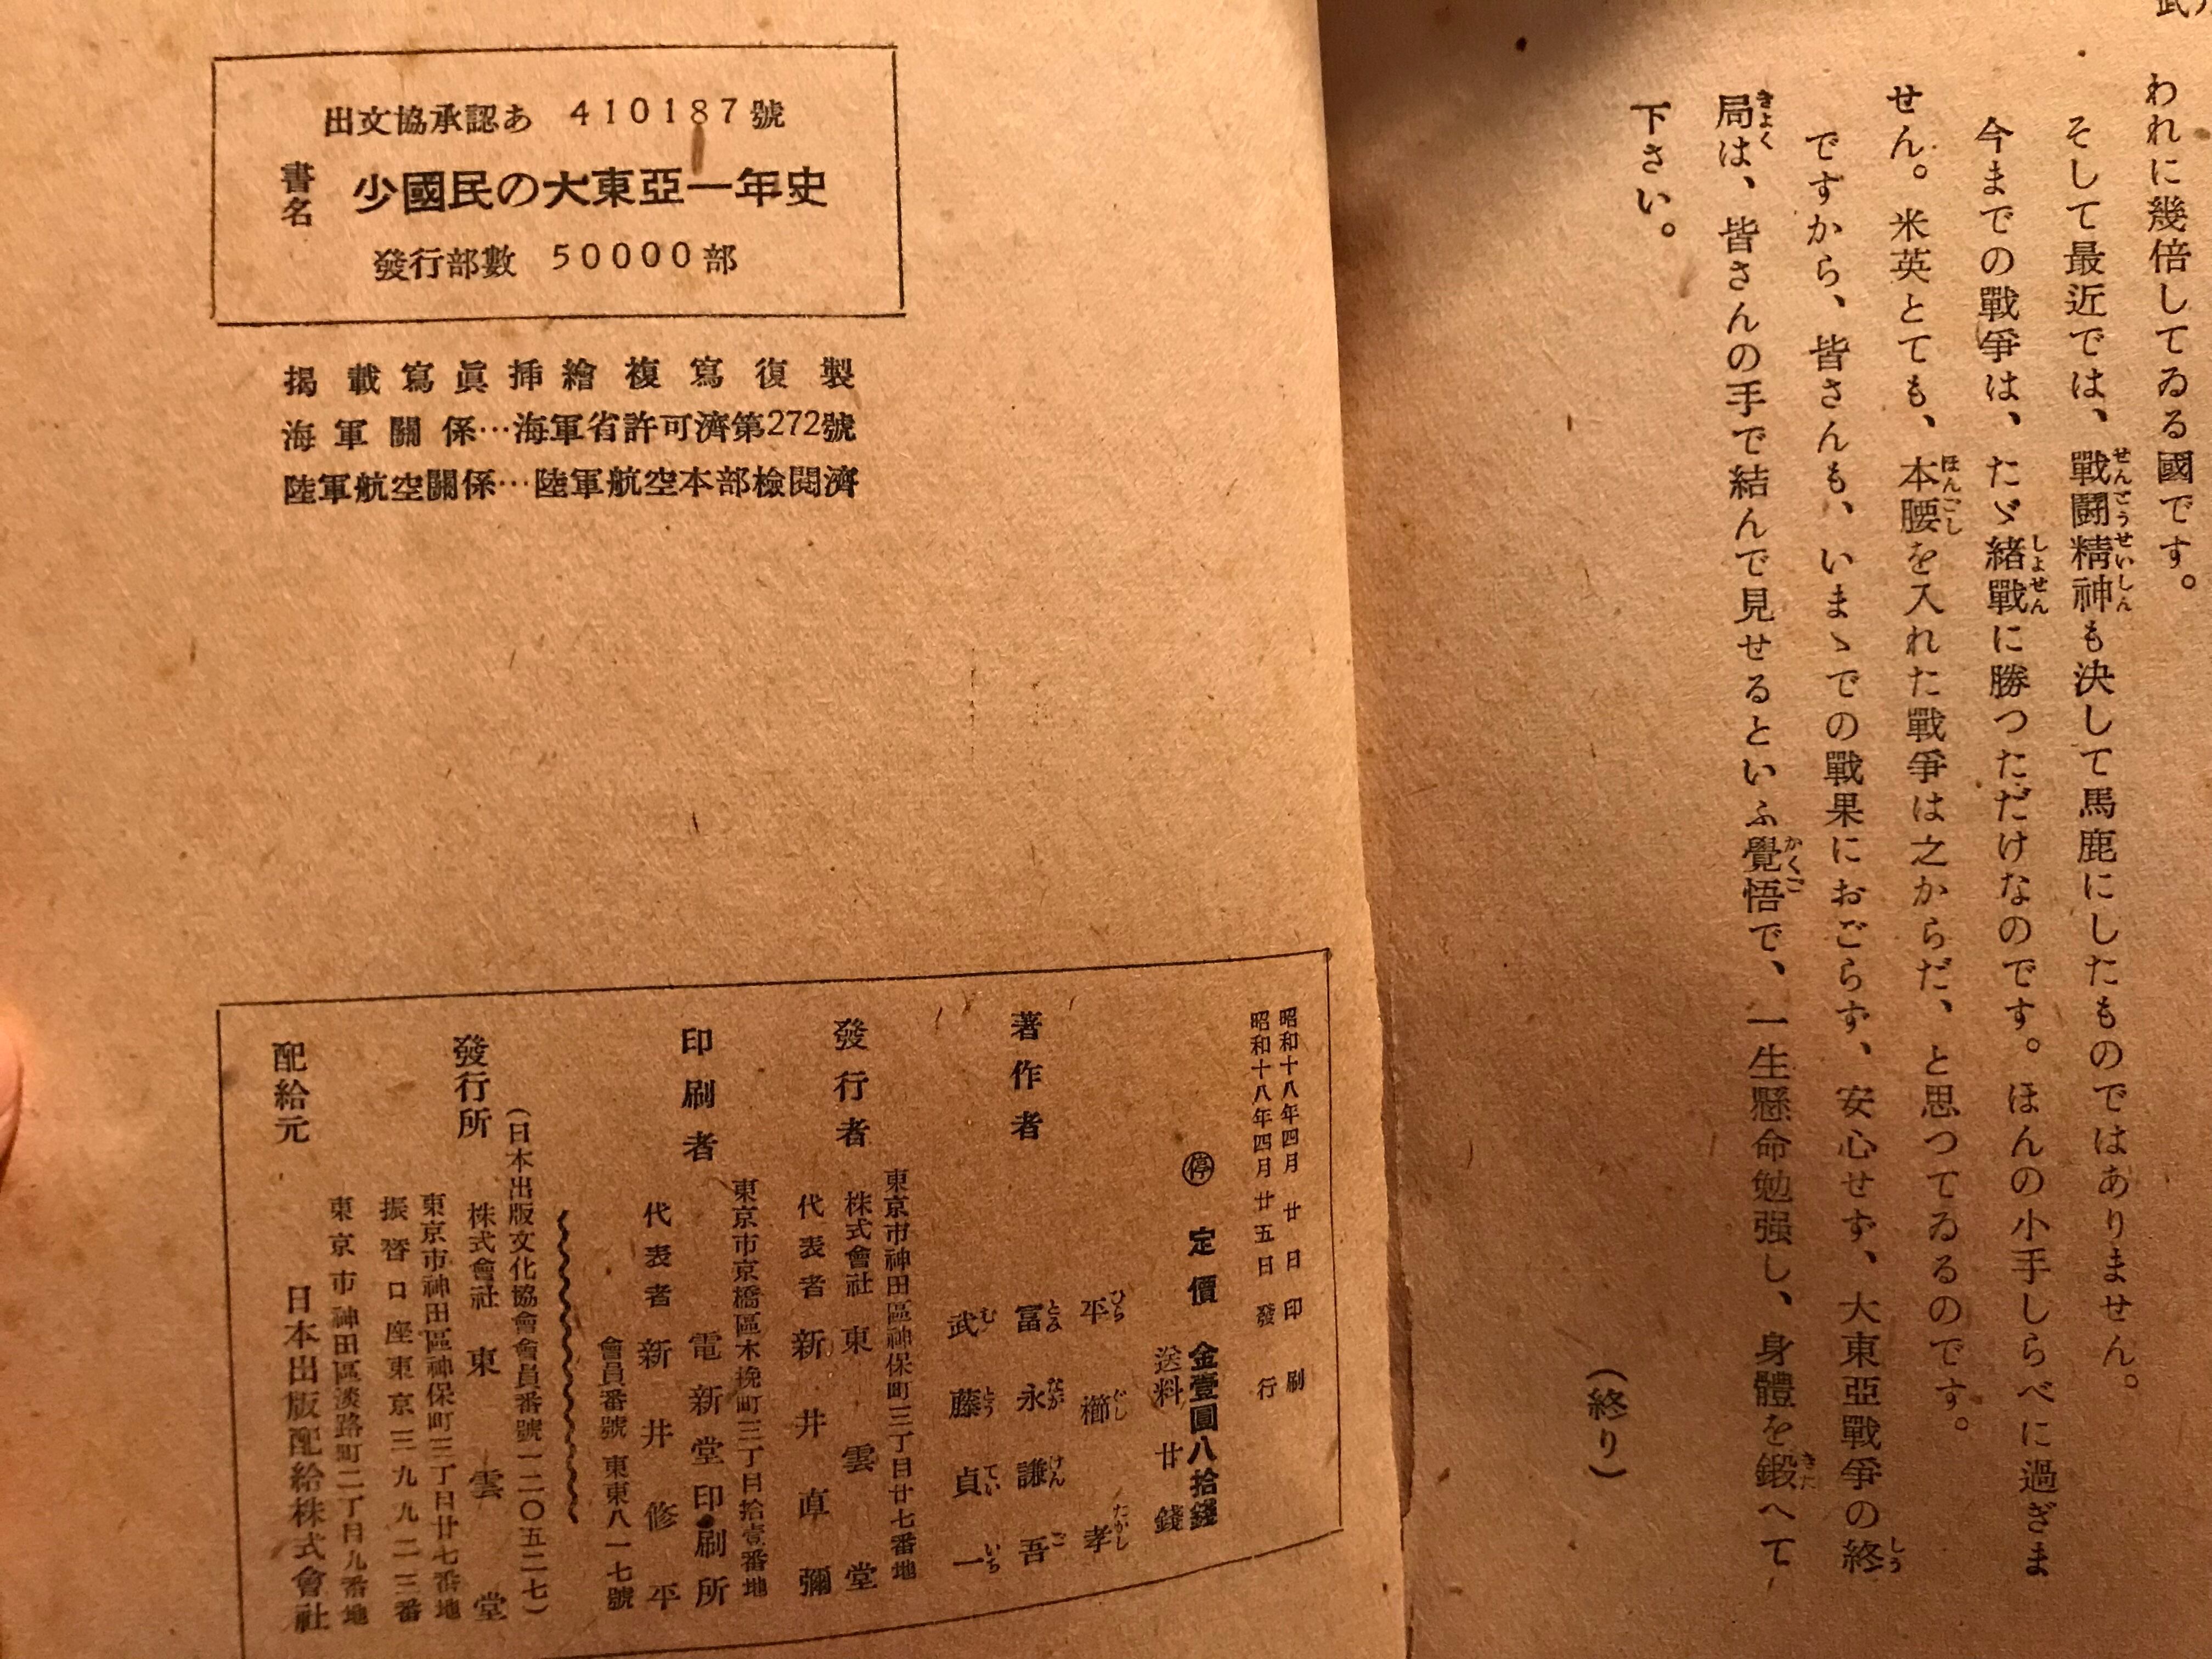 われに幾倍してゐる國です。
そして最近では、戰闘精神も決して馬鹿にしたものではありません。
今までの戰爭は、たゞ緒戰に勝つただけなのです。ほんの小手しらべに過ぎま
せん。米英とても、本腰を入れた戰爭は之からだ、と思つてゐるのです。
ですから、皆さんも、いまゝでの戰果におごらず、安心せず、大東亞戰爭の終
局は、皆さんの手で結んで見せるといふ覺悟で、一生懸命勉强し、身體を鍛へて
下さい。
（終り）
出文協承認あ 410187號
書名 少國民の大東亞一年史
發行部數 50000部
揭載寫眞挿繪複寫復製
海軍關係…海軍省許可濟第272號
陸軍航空關係…陸軍航空本部檢閱濟
昭和十八年四月廿日印刷
昭和十八年四月廿五日發行
㊡ 定價 金壹圓八拾錢
送料廿錢
著作者
平櫛孝
富永謙吾
武藤貞一
發行者
東京市神田區神保町三丁目廿七番地
株式會社 東雲堂
代表者 新井直彌
印刷者
東京市京橋區木挽町三丁目拾壹番地
電新堂印刷所
代表者 新井修平
會員番號 東東八一七號
（日本出版文化協會會員番號一二〇五二七）
發行所 株式會社 東雲堂
東京市神田區神保町三丁目廿七番地
振替口座東京三九九二三番
東京市神田區淡路町二丁目九番地
配給元 日本出版配給株式會社